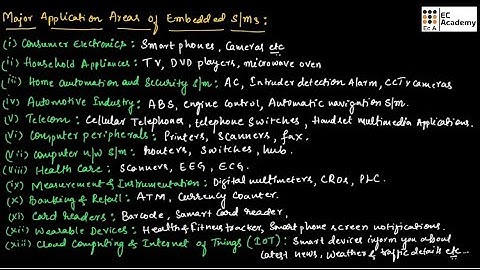 Major Application Areas of Embedded S/ms :
EC Academy
Ec A
(i) Consumer Electronics : Smart phones, Cameras etc
(ii) Household Appliances : TV, DVD players, microwave oven
(iii) Home Automation and Security S/m : AC, Intruder detection Alarm, CCTV cameras
(iv) Automotive Industry : ABS, engine control, Automatic navigation S/m.
(v) Telecom : Cellular Telephones, telephone Switches, Handset multimedia Applications.
(vi) Computer peripherals : Printers, Scanners, fax,
(vii) Computer n/w S/m : Routers, Switches, hub.
(viii) Health Care : Scanners, EEG, ECG.
(ix) Measurement & Instrumentation : Digital multimeters, CROs, PLC.
(x) Banking & Retail : ATM, Currency Counter.
(xi) Card Readers : Barcode, Samart Card reader,
(xii) Wearable Devices : Health & Fitness trackers, Smart phone screen notifications.
(xiii) Cloud Computing & Internet of Things (IOT) : Smart devices inform you about
latest news, weather & traffic details etc...